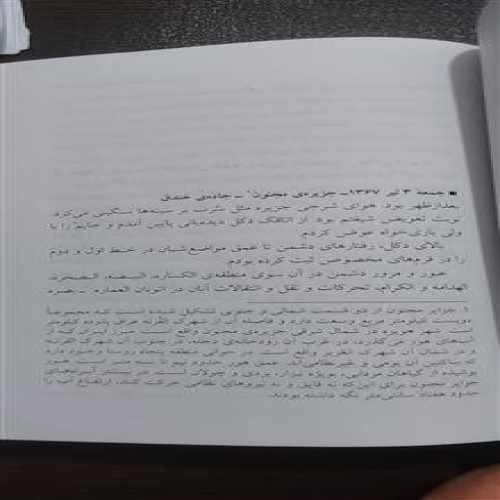 ■ جمعه ۳ تیر ۱۳۶۷ـ جزیره‌ی مجنون۱ ـ جاده‌ی خندق
بعدازظهر بود. هوای شرجی جزیره مثل سُرب بر سینه‌ها سنگینی می‌کرد.
نوبت تعویض شیفتم بود. از اتاقک دکل دیده‌بانی پایین آمدم و جایم را با
ولی یاری‌خواه عوض کردم.
بالای دکل، رفتارهای دشمن تا عمق مواضع‌شان در خط اول و دوم
را در فرم‌های مخصوص ثبت کرده بودم.
عبور و مرور دشمن در آن سوی منطقه‌ی الکساره، البیضه، الصخره،
الهدامه و الکرام، تحرکات و نقل و انتقالات آنان در اتوبان العماره ـ بصره
۱. جزایر مجنون از دو قسمت شمالی و جنوبی تشکیل شده است که مجموعاً
کیلومتر مربع وسعت دارد و فاصله آن از شهرک القُرنه عراق پانزده کیلومتر
است. شهر هویزه در شمال شرقی جزیره‌ی مجنون واقع است.
آب‌های هور می‌گذرد، در غرب آن رودخانه‌ی دجله، در جنوب آن شهرک القرنه
و در شمال آن شهرک العُزیر واقع است. در حوالی منطقه پنجاه روستا وجود دارد
که ساکنین آن بومی و غیرنظامی‌اند. عمق هور حدود نیم تا سه متر است. هور
پوشیده از گیاهان مردابی، بنام نیزار، بردی و چولان است. در بستر آبراه‌های
جزایر مجنون برای این‌که نه قایق و نه نیروهای نظامی حرکت کنند، ارتفاع آب را
حدود هفتاد سانتی‌متر نگه داشته بودند.